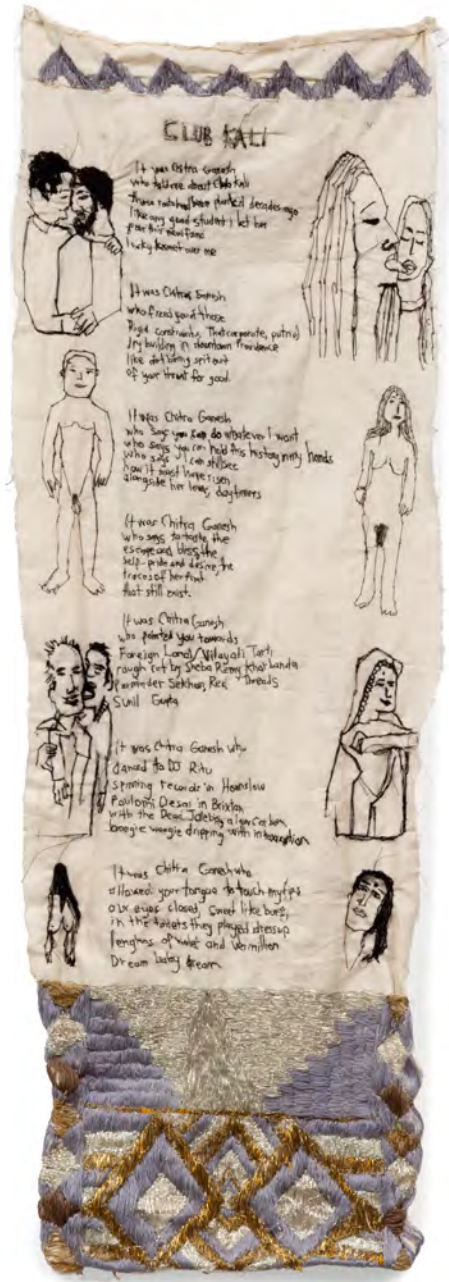 CLUB KALI
It was Chitra Ganesh
who told me about Club Kali
those roots had been planted decades ago
like any good student I let her
pour this
lucky kismet over me
It was Chitra Ganesh
who freed you of those
Rigid constraints. That corporate, putrid
dry building in downtown Providence
like dirt being spit out
of your throat for good.
It was Chitra Ganesh
who says you can do whatever I want
who says you can hold this history in my hands
who says I can still see
how it must have risen
alongside her lovers, daytimes
It was Chitra Ganesh
who says to taste the
escape and bless the
help- pride and desire, the
traces of her
that still exist.
It was Chitra Ganesh
who pointed you towards
Foreign Land/Vilayati Tarti
rough cut by Sheba Remy Kharbanda
Parminder Sekhon, Red Threads
Sunil Gupta
It was Chitra Ganesh who
danced to DJ Ritu
spinning records in Hounslow
Poulomi Desai in Brixton
with the Dead Jalebies
boogie woogie dripping with intoxication
It was Chitra Ganesh who
allowed your tongue to touch my lips
our eyes closed, sweet like burfi,
in the streets they played dressup
lengths of violet and Vermillion
Dream baby dream